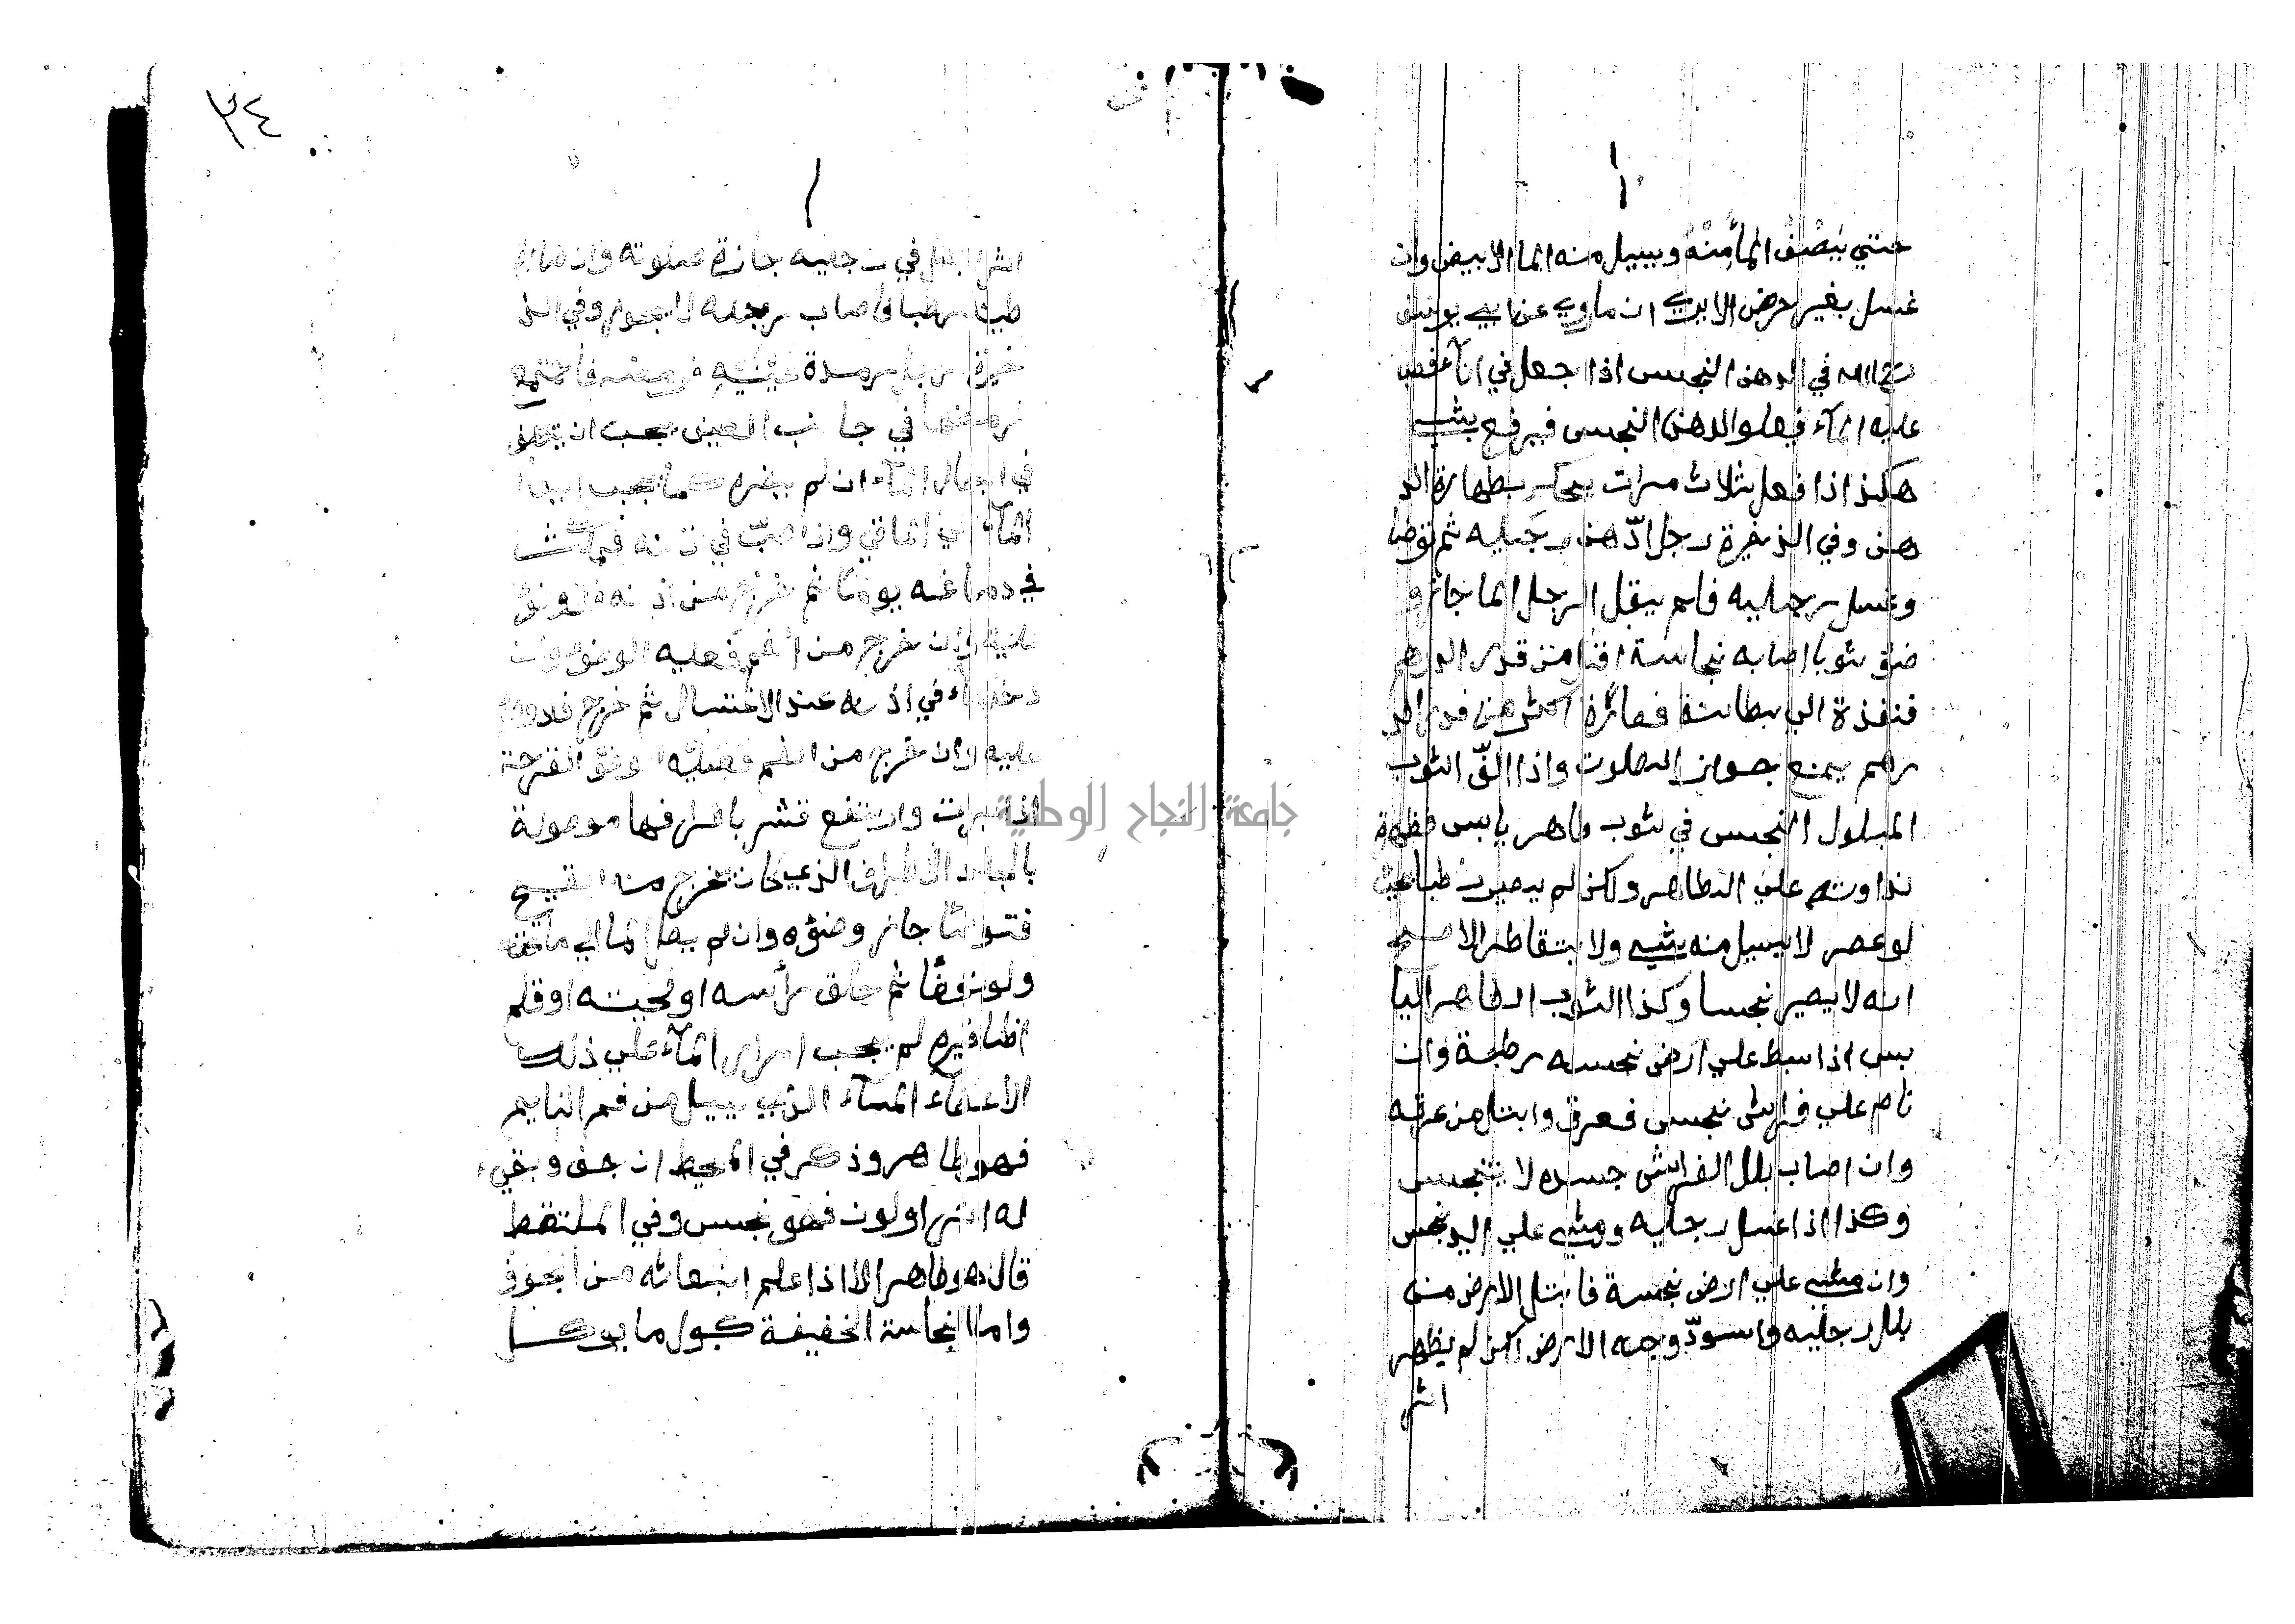 حتي يَصْفُ المأمِنْهُ ويسيل منه الما الابيض وان
غسل بغير حرض الايري ان ماروي عن ابي يوسف
في الدهن النجس اذا جعل في انآء فصب
عليه المآء فيعلو الدهن النجس فيرفع بشيء
هكذا اذا فعل ثلاث مرات يحكم بطهارة الد
هن وفي الذخيرة رجل ادّهن رجليه ثم توضا
وغسل رجليه فلم يقبل الرجل الما جاز و
ضؤ ثوبا اصابه نجاسة اقل من قدر الدرهم
فنفذة الي بطانته فصارة اكثر من قدر الد
رهم يمنع جواز الصلوت واذا الفّ الثوب
المبلول النجس في ثوب طاهر يابس فظهرة
نداوته علي الطاهر ولكن لم يصير رطبا بحيث
لو عصر لا يسيل منه شيء ولا يتقاطر الاصح
انه لا يصير نجسا وكذا الثوب الطاهر اليا
بس اذا بسط علي ارض نجسه رطبة وان
نام علي فراش نجس فعرق وابتل من عرقه
وان اصاب بلل الفراش جسده لا يتنجس
وكذا اذا غسل رجليه ومشي علي اليد نجس
وان مشي علي الارض نجسة فابتل الارض من
بلل رجليه واسودّ وجه الارض لكن لم يظهر
اثر
٣٤
اثر البلل في رجليه جازة صلوته وان صارة
طينا رطبا فاصاب رجله لا يجوز وفي الذ
خيرة رجل رمدة عينيه فرمصه فاجتمع
رمصها في جانب العين يجب ان يتكلف
في ايصال المآء ان لم يضره كما يجب ايصال
المآء الي الماقي واذا صبّ في اذنه فمكث
في دماغه يوما ثم خرج من اذنه فلا وضؤ
عليه وان خرج من الفم فعليه الوضؤ وان
دخل المآء في اذنه عند الاغتسال ثم خرج فلا وضؤ
عليه وان خرج من الفم فعليه الوضؤ القرحة
اذا برات وارتفع قشر باطرافها موصولة
بالجلد الا الطرف الذي كان يخرج منه القيح
فتوضا جاز وضؤه وان لم يصل الما الي ماتحته
ولو توضأ ثم حلق رأسه او لحيته او قلم
اظافيره لم يجب امرار المآء علي ذلك
الاعضاء المآء الذي يسيل من فم النايم
فهو طاهر وذكر في المحيط ان جف وبقي
له اثر او لون فهو نجس وفي الملتقط
قال هو طاهر الا اذا علم انبعاثه من الجوف
واما النجاسة الخفيفة كبول ما يوكل
جامعة النجاح الوطنية